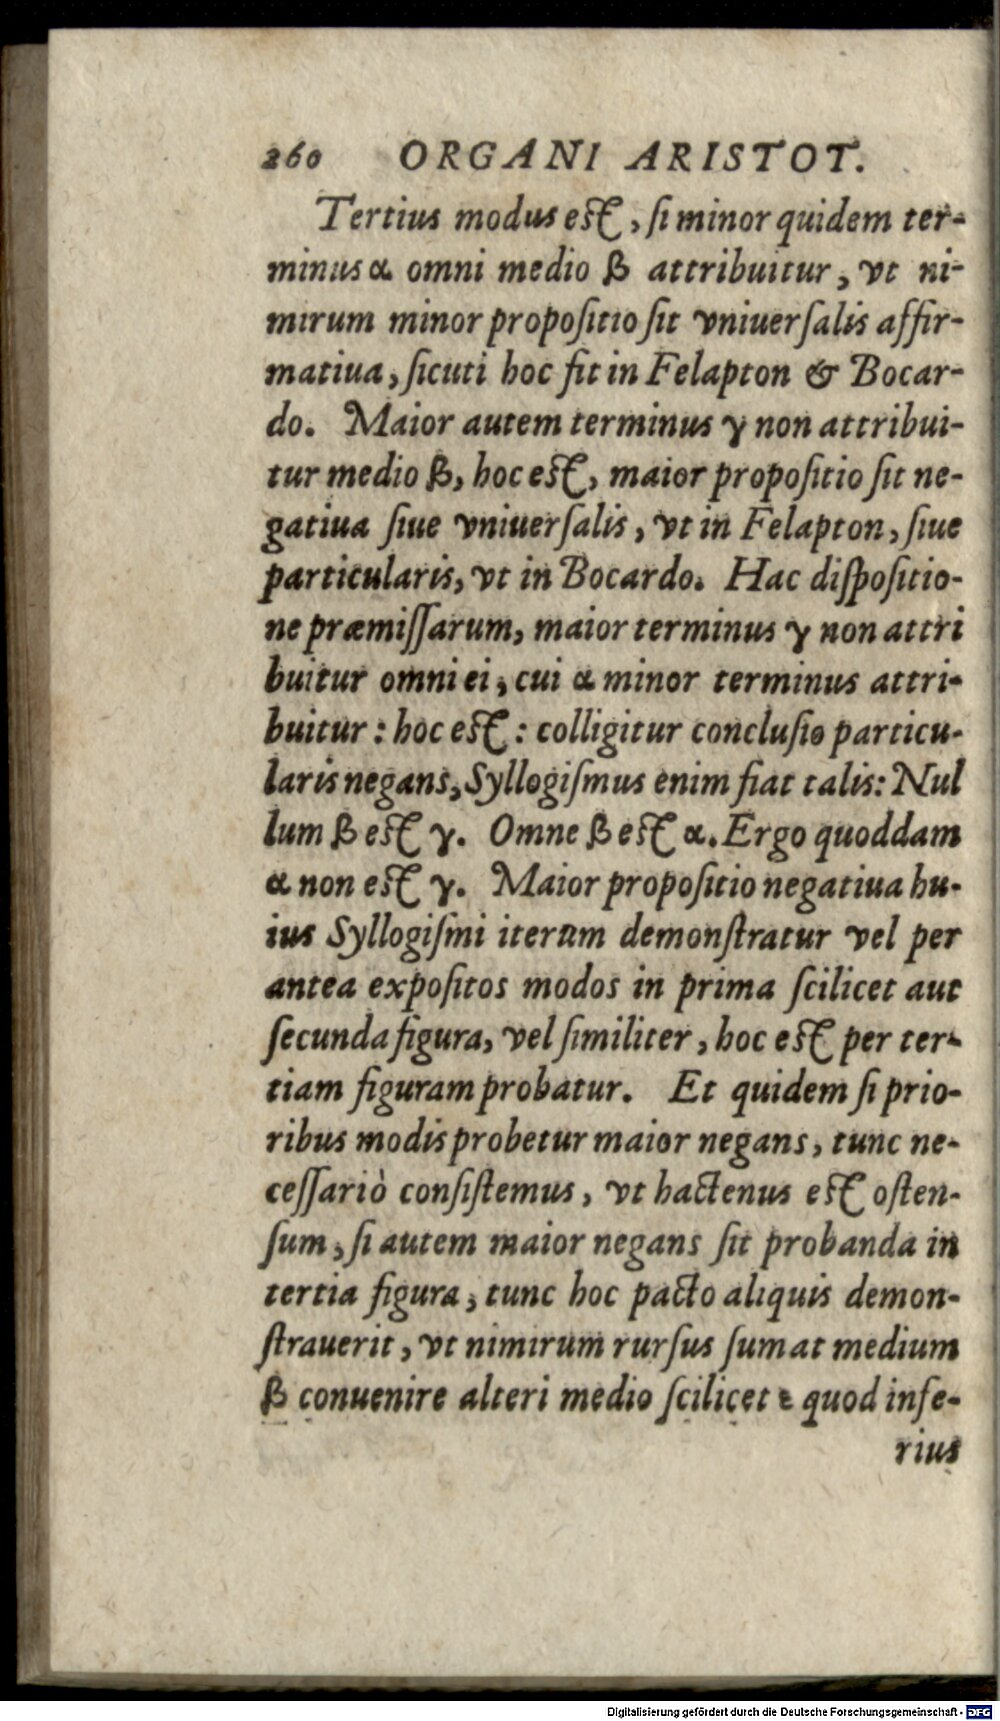 260 ORGANI ARISTOT.
Tertius modus est, ſi minor quidem ter-
minus α omni medio β attribuitur, vt ni-
mirum minor propoſitio ſit vniuerſalis affir-
matiua, ſicuti hoc fit in Felapton & Bocar-
do. Maior autem terminus γ non attribui-
tur medio β, hoc est, maior propoſitio ſit ne-
gatiua ſiue vniuerſalis, vt in Felapton, ſiue
particularis, vt in Bocardo. Hac diſpoſitio-
ne præmiſſarum, maior terminus γ non attri
buitur omni ei, cui α minor terminus attri-
buitur: hoc est: colligitur concluſio particu-
laris negans, Syllogiſmus enim fiat talis: Nul
lum β est γ. Omne β est α. Ergo quoddam
α non est γ. Maior propoſitio negatiua hu-
ius Syllogiſmi iterum demonſtratur vel per
antea expoſitos modos in prima ſcilicet aut
ſecunda figura, vel ſimiliter, hoc est per ter-
tiam figuram probatur. Et quidem ſi prio-
ribus modis probetur maior negans, tunc ne-
ceſſariò conſiſtemus, vt hactenus est oſten-
ſum, ſi autem maior negans ſit probanda in
tertia figura, tunc hoc pacto aliquis demon-
ſtrauerit, vt nimirum rurſus ſumat medium
β conuenire alteri medio ſcilicet ε quod infe-
rius
Digitalisierung gefördert durch die Deutsche Forschungsgemeinschaft - DFG